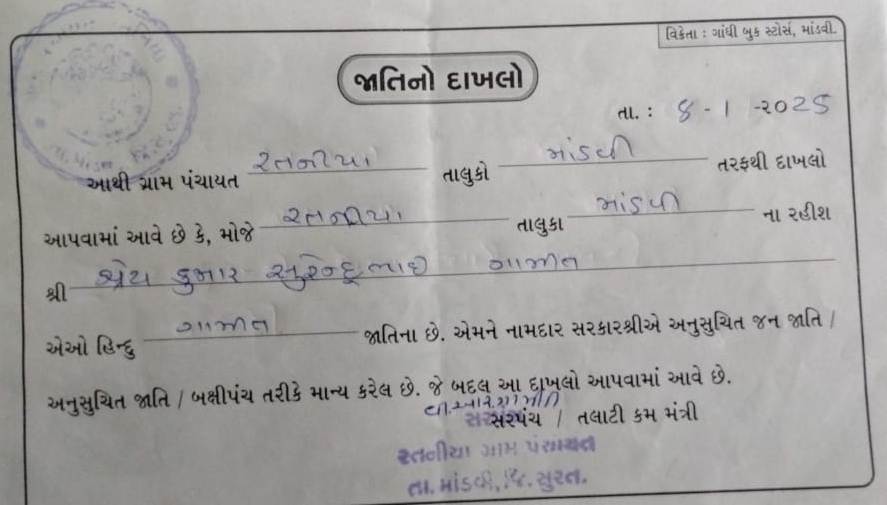 વિક્રેતા : ગાંધી બુક સ્ટોર્સ, માંડવી.
જાતિનો દાખલો
તા. : ૬ - ૧ -૨૦૨૫
આથી ગ્રામ પંચાયત રતનીયા તાલુકો માંડવી તરફથી દાખલો
આપવામાં આવે છે કે, મોજે રતનીયા તાલુકા માંડવી ના રહીશ
શ્રી શ્રેય કુમાર સુરેન્દ્રભાઇ ગામીત
એઓ હિન્દુ ગામીત જાતિના છે. એમને નામદાર સરકારશ્રીએ અનુસુચિત જન જાતિ /
અનુસુચિત જાતિ / બક્ષીપંચ તરીકે માન્ય કરેલ છે. જે બદલ આ દાખલો આપવામાં આવે છે.
વી.આર.ગામીત
સરપંચ / તલાટી કમ મંત્રી
રતનીયા ગ્રામ પંચાયત
તા.માંડવી,જિ. સુરત.